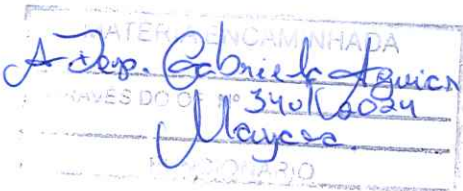 MATÉRIA ENCAMINHADA
A Dep. Gabriela Aguiar
ATRAVÉS DO OF. Nº 340/2024
Maycon
FUNCIONÁRIO